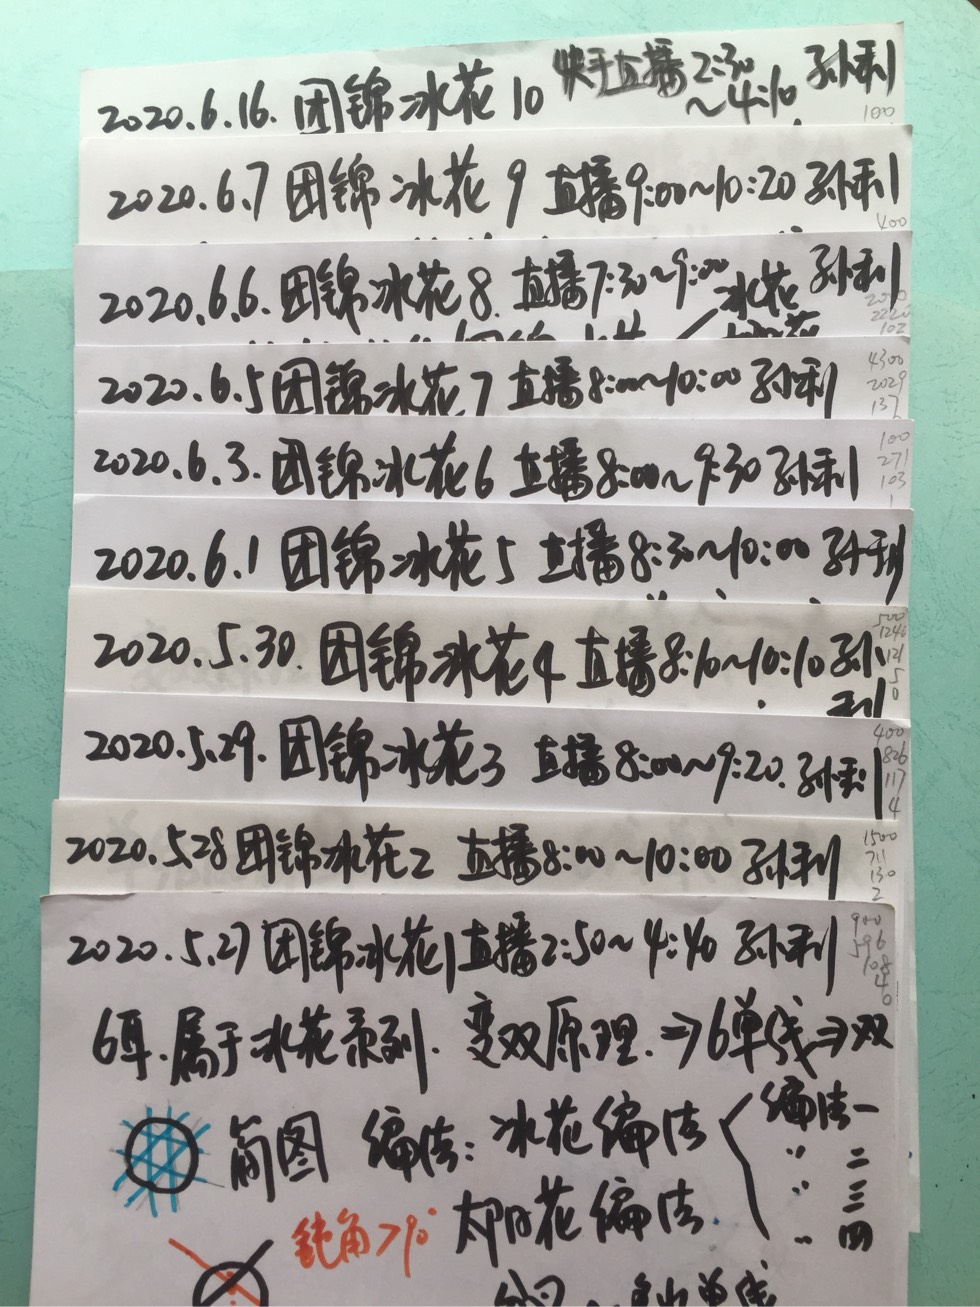 2020.6.16. 团锦冰花10 快手直播2:30 孙利
~4:10
100
2020.6.7 团锦冰花9 直播9:00~10:20 孙利
400
2020.6.6. 团锦冰花8. 直播7:30~9:00 孙利
冰花
2220
102
2020.6.5 团锦冰花7 直播8:00~10:00 孙利
4300
2029
137
2020.6.3. 团锦冰花6 直播8:00~9:30 孙利
100
271
103
1
2020.6.1 团锦冰花5 直播8:30~10:00 孙利
2020.5.30. 团锦冰花4 直播8:10~10:10 孙
利
500
1246
121
5
0
2020.5.29. 团锦冰花3 直播8:00~9:20. 孙利
400
826
117
4
2020.5.28 团锦冰花2 直播8:00~10:00 孙利
1500
711
130
2
2020.5.27 团锦冰花1 直播2:50~4:40 孙利
900
596
108
4
0
6耳.属于冰花系列. 变双原理.⇒6单线⇒双
简图 编法:冰花编法 编法一
〃 二
太阳花编法. 〃 三
〃 四
钝角>90°